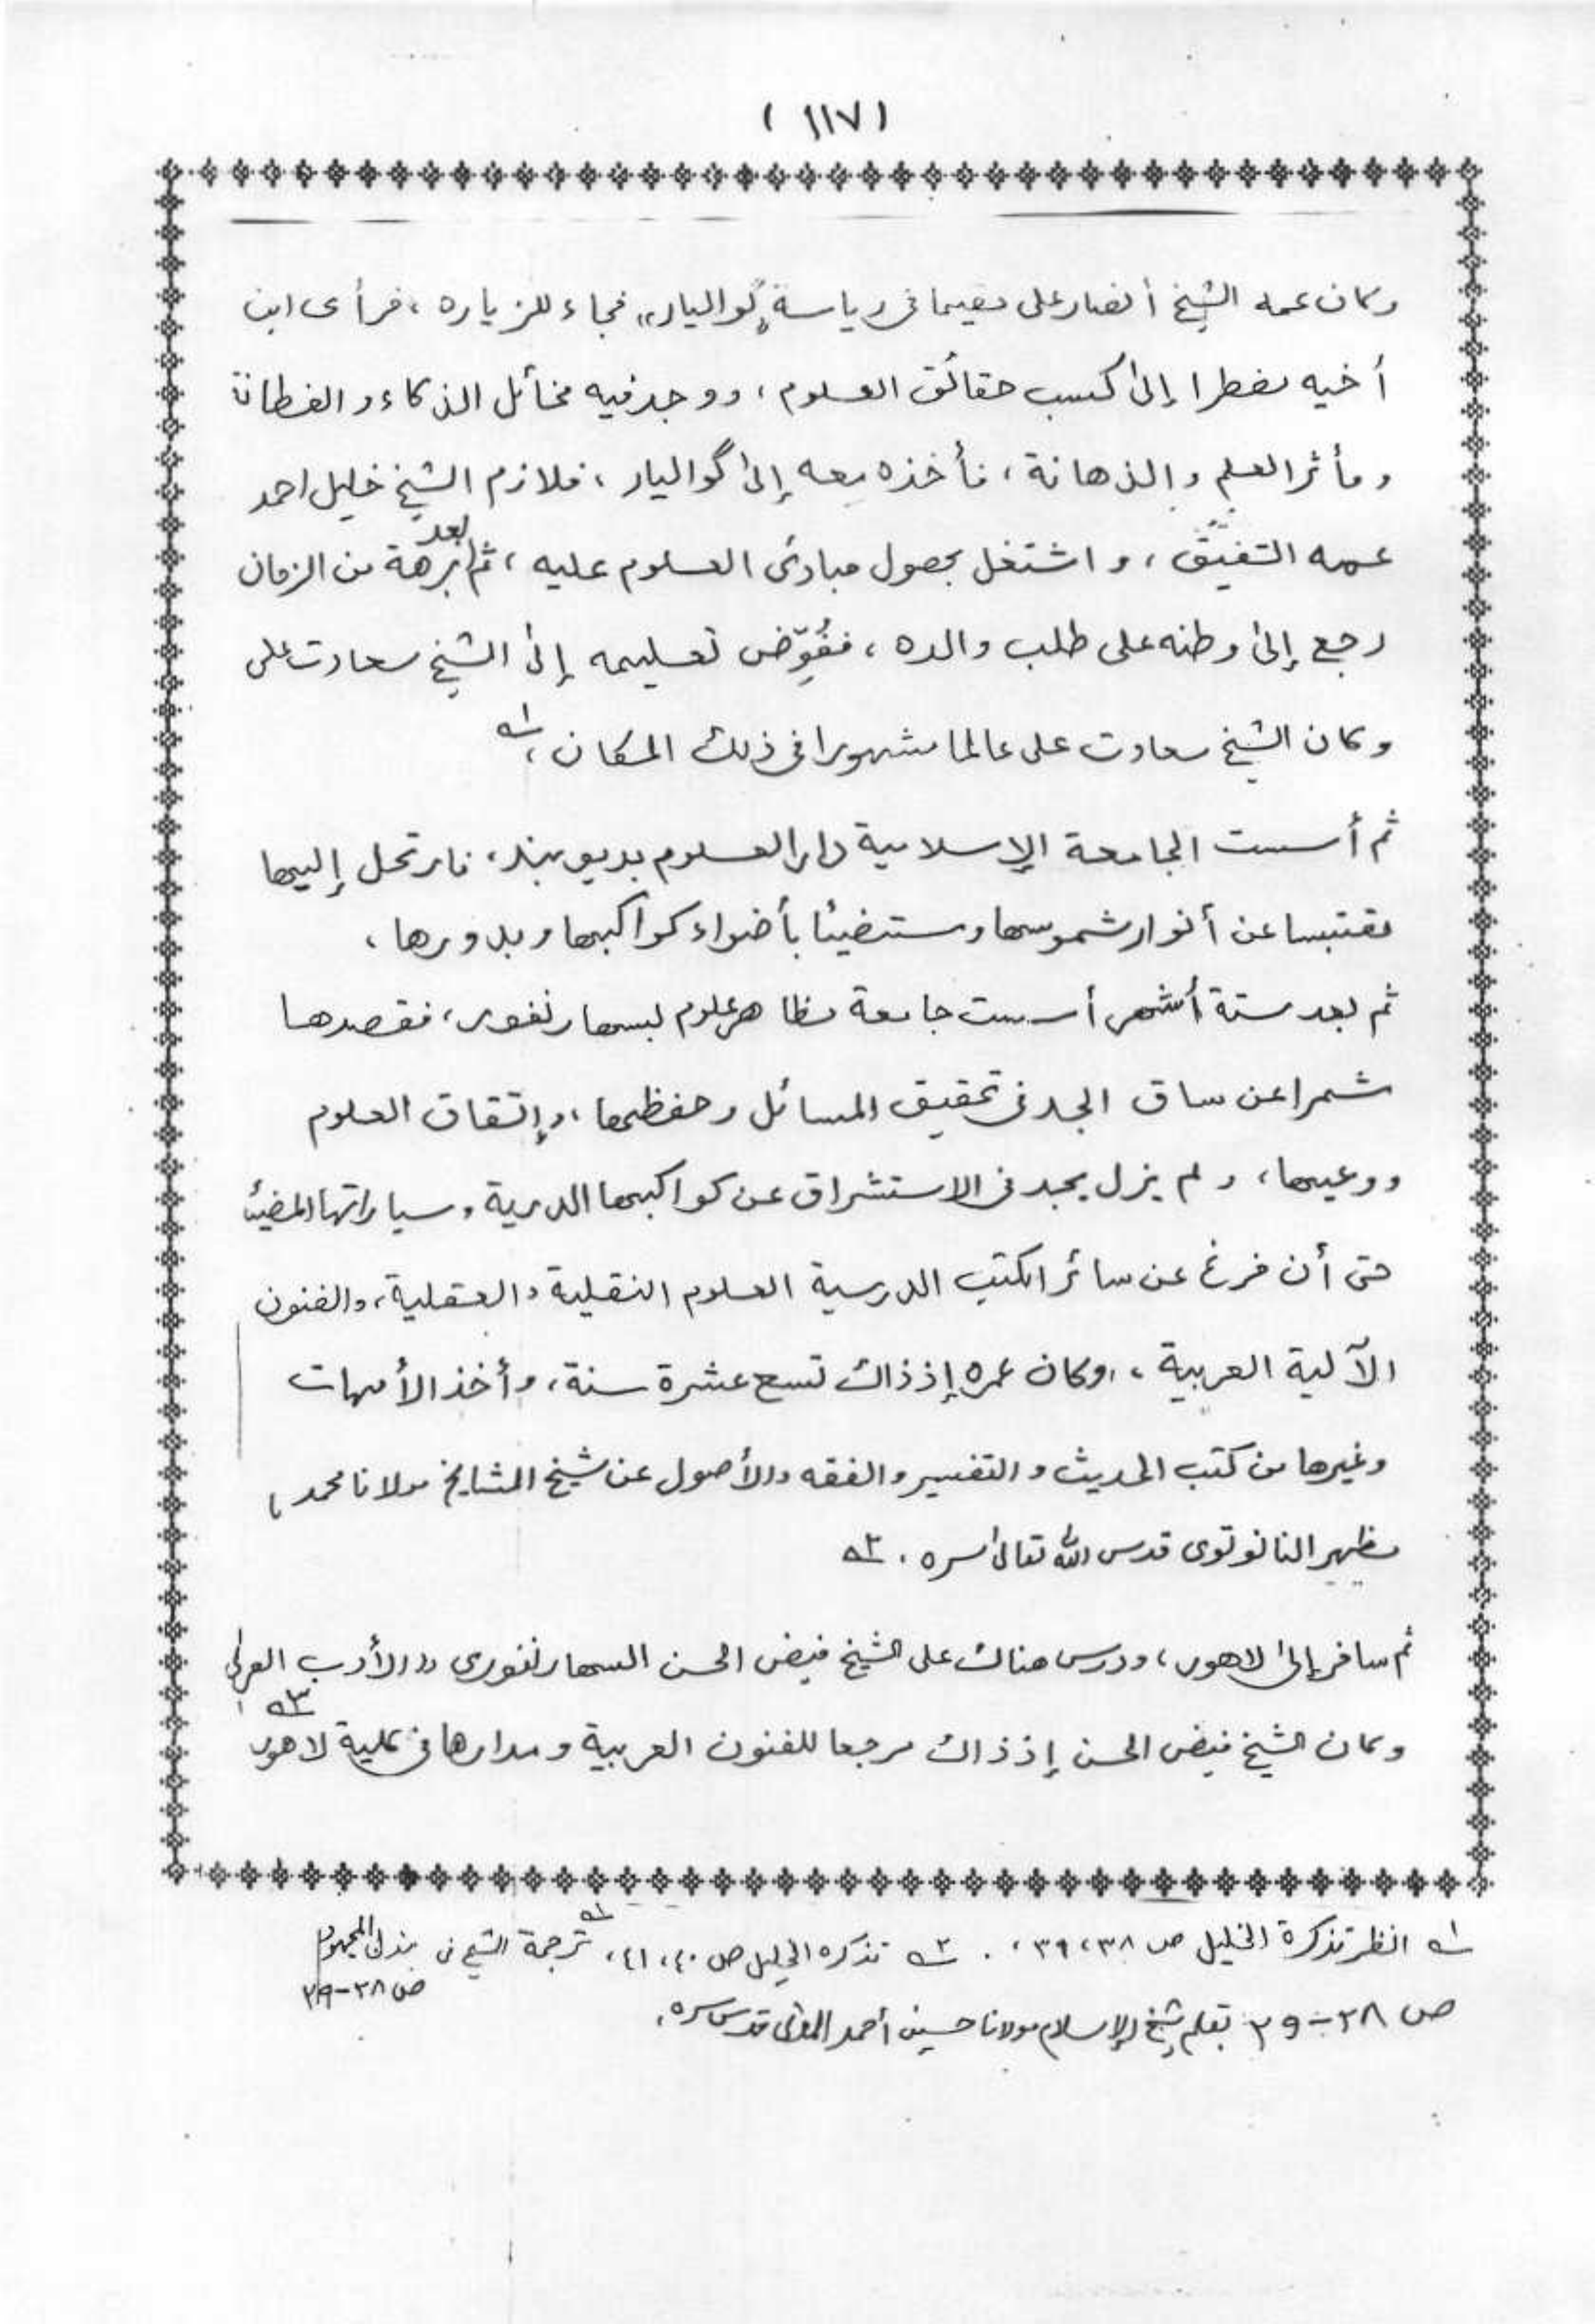 ( ١١٧ )
وكان عمه الشيخ أنصار على مقيما فى رياسة "گواليار" فجاء للزياره، فرأى ابن
أخيه مضطرا إلى كسب حقائق العلوم، ووجد فيه مخائل الذكاء و الفطانة
و مأثر العلم و الذهانة، فأخذه معه إلى گواليار، فلازم الشيخ خليل احمد
عمه الشفيق، و اشتغل بحصول مبادئ العلوم عليه، ثم بعد برهة من الزمان
رجع إلى وطنه على طلب والده، ففُوِّض تعليمه إلى الشيخ سعادت على
و كان الشيخ سعادت على عالما مشهورا فى ذلك المكان، ١ـه
ثم أسست الجامعة الإسلامية دار العلوم بديوبند، فارتحل إليها
مقتبسا عن أنوار شموسها ومستضيئا بأضواء كواكبها وبدورها،
ثم بعد ستة أشهر أسست جامعة مظاهر علوم بسهارنفور، فقصدها
مشمرا عن ساق الجد فى تحقيق المسائل وحفظها، وإتقان العلوم
ووعيها، ولم يزل يجد فى الاستشراق عن كواكبها الدرية وسياراتها المضيئة
حتى أن فرغ عن سائر الكتب الدرسية العلوم النقلية والعقلية، والفنون
الآلية العربية، وكان عمره إذ ذاك تسع عشرة سنة، وأخذ الأمهات
وغيرها من كتب الحديث و التفسير والفقه والأصول عن شيخ المشايخ مولانا محمد
مظهر النانوتوى قدس الله تعالى سره. ٢ـه
ثم سافر إلى لاهور، ودرس هناك على الشيخ فيض الحسن السهارنفورى "الأدب العربى
وكان الشيخ فيض الحسن إذ ذاك مرجعا للفنون العربية ومدارها فى كلية لاهور ٣ـه
١ـه انظر تذكرة الخليل ص ٣٨، ٣٩، . ٢ـه تذكره الخليل ص ٤٠، ٤١، ترجمة الشيخ فى بذل المجهود
ص ٢٨-٢٩
ص ٢٨-٢٩ بقلم شيخ الإسلام مولانا حسين أحمد المدنى قدس سره.